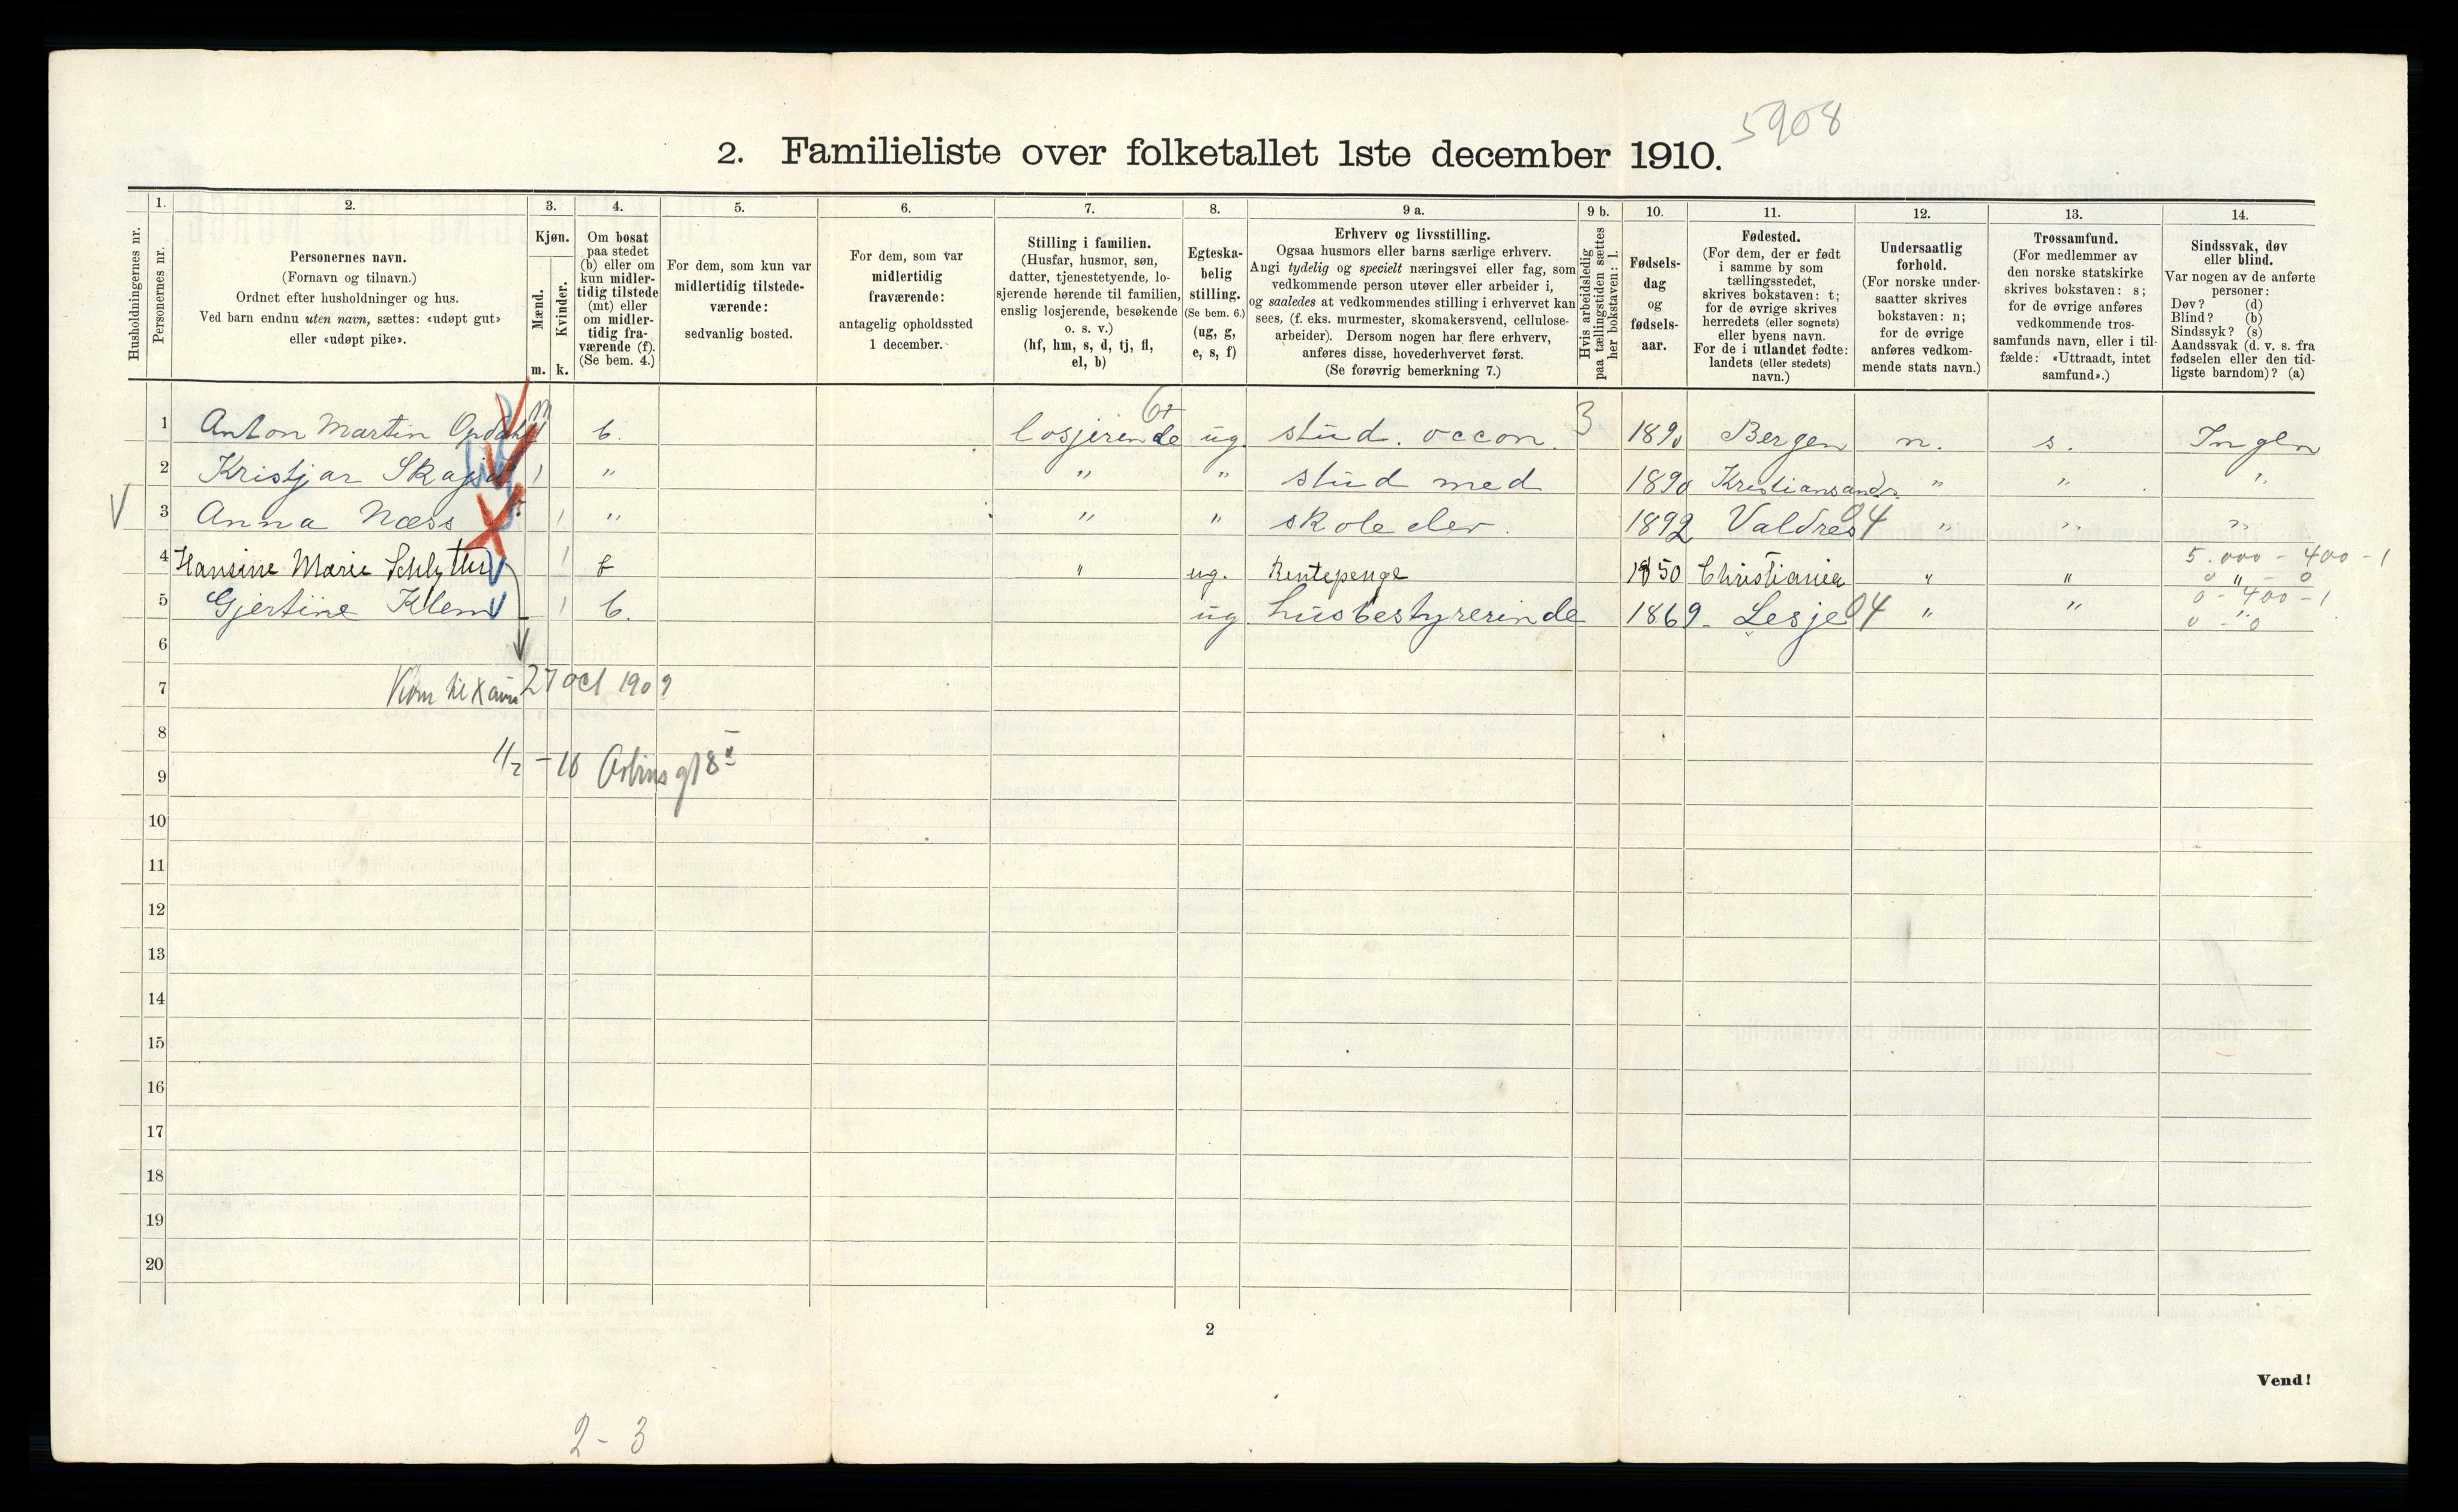 5908
2. Familieliste over folketallet 1ste december 1910.
Husholdningernes nr.
1. Personernes nr.
2. Personernes navn.
(Fornavn og tilnavn.)
Ordnet efter husholdninger og hus.
Ved barn endnu uten navn, sættes: «udøpt gut»
eller «udøpt pike».
3. Kjøn.
Mænd. m.
Kvinder. k.
4. Om bosat
paa stedet
(b) eller om
kun midler-
tidig tilstede
(mt) eller
om midler-
tidig fra-
værende (f).
(Se bem. 4.)
5. For dem, som kun var
midlertidig tilstede-
værende:
sedvanlig bosted.
6. For dem, som var
midlertidig
fraværende:
antagelig opholdssted
1 december.
7. Stilling i familien.
(Husfar, husmor, søn,
datter, tjenestetyende, lo-
sjerende hørende til familien,
enslig losjerende, besøkende
o. s. v.)
(hf, hm, s, d, tj, fl,
el, b)
8. Egteska-
belig
stilling.
(Se bem. 6.)
(ug, g,
e, s, f)
9 a. Erhverv og livsstilling.
Ogsaa husmors eller barns særlige erhverv.
Angi tydelig og specielt næringsvei eller fag, som
vedkommende person utøver eller arbeider i,
og saaledes at vedkommendes stilling i erhvervet kan
sees, (f. eks. murmester, skomakersvend, cellulose-
arbeider). Dersom nogen har flere erhverv,
anføres disse, hovederhvervet først.
(Se forøvrig bemerkning 7.)
9 b. Hvis arbeidsledig
paa tællingstiden sættes
her bokstaven: l.
10. Fødsels-
dag
og
fødsels-
aar.
11. Fødested.
(For dem, der er født
i samme by som
tællingsstedet,
skrives bokstaven: t;
for de øvrige skrives
herredets (eller sognets)
eller byens navn.
For de i utlandet fødte:
landets (eller stedets)
navn.)
12. Undersaatlig
forhold.
(For norske under-
saatter skrives
bokstaven: n;
for de øvrige
anføres vedkom-
mende stats navn.)
13. Trossamfund.
(For medlemmer av
den norske statskirke
skrives bokstaven: s;
for de øvrige anføres
vedkommende tros-
samfunds navn, eller i til-
fælde: «Uttraadt, intet
samfund».)
14. Sindssvak, døv
eller blind.
Var nogen av de anførte
personer:
Døv? (d)
Blind? (b)
Sindssyk? (s)
Aandssvak (d. v. s. fra
fødselen eller den tid-
ligste barndom)? (a)
1 Anton Martin Opdahl 1 b. losjerende ug. stud. occon. 3 1890 Bergen n. s. Ingen
2 Kristjar 1 " " " stud med 1890 Kristiansand " " "
V 3 Anna Næss 1 " " " skole elev. 1892 Valdres 04 " " "
4 Hansine Marie Schlytter 1 f " ug. Rentepenge 1850 Christiania " " 5.000 - 400 - 1
0 " - 0
5 Gjertine Klem 1 b. ug husbestyrerinde 1869 Lesje 04 " " 0 - 400 - 1
0 - 0
6
7 Kom til Xania 27 oct 1909
8
9 1/2 - 16
10
11
12
13
14
15
16
17
18
19
20
2
Vend!
2 - 3